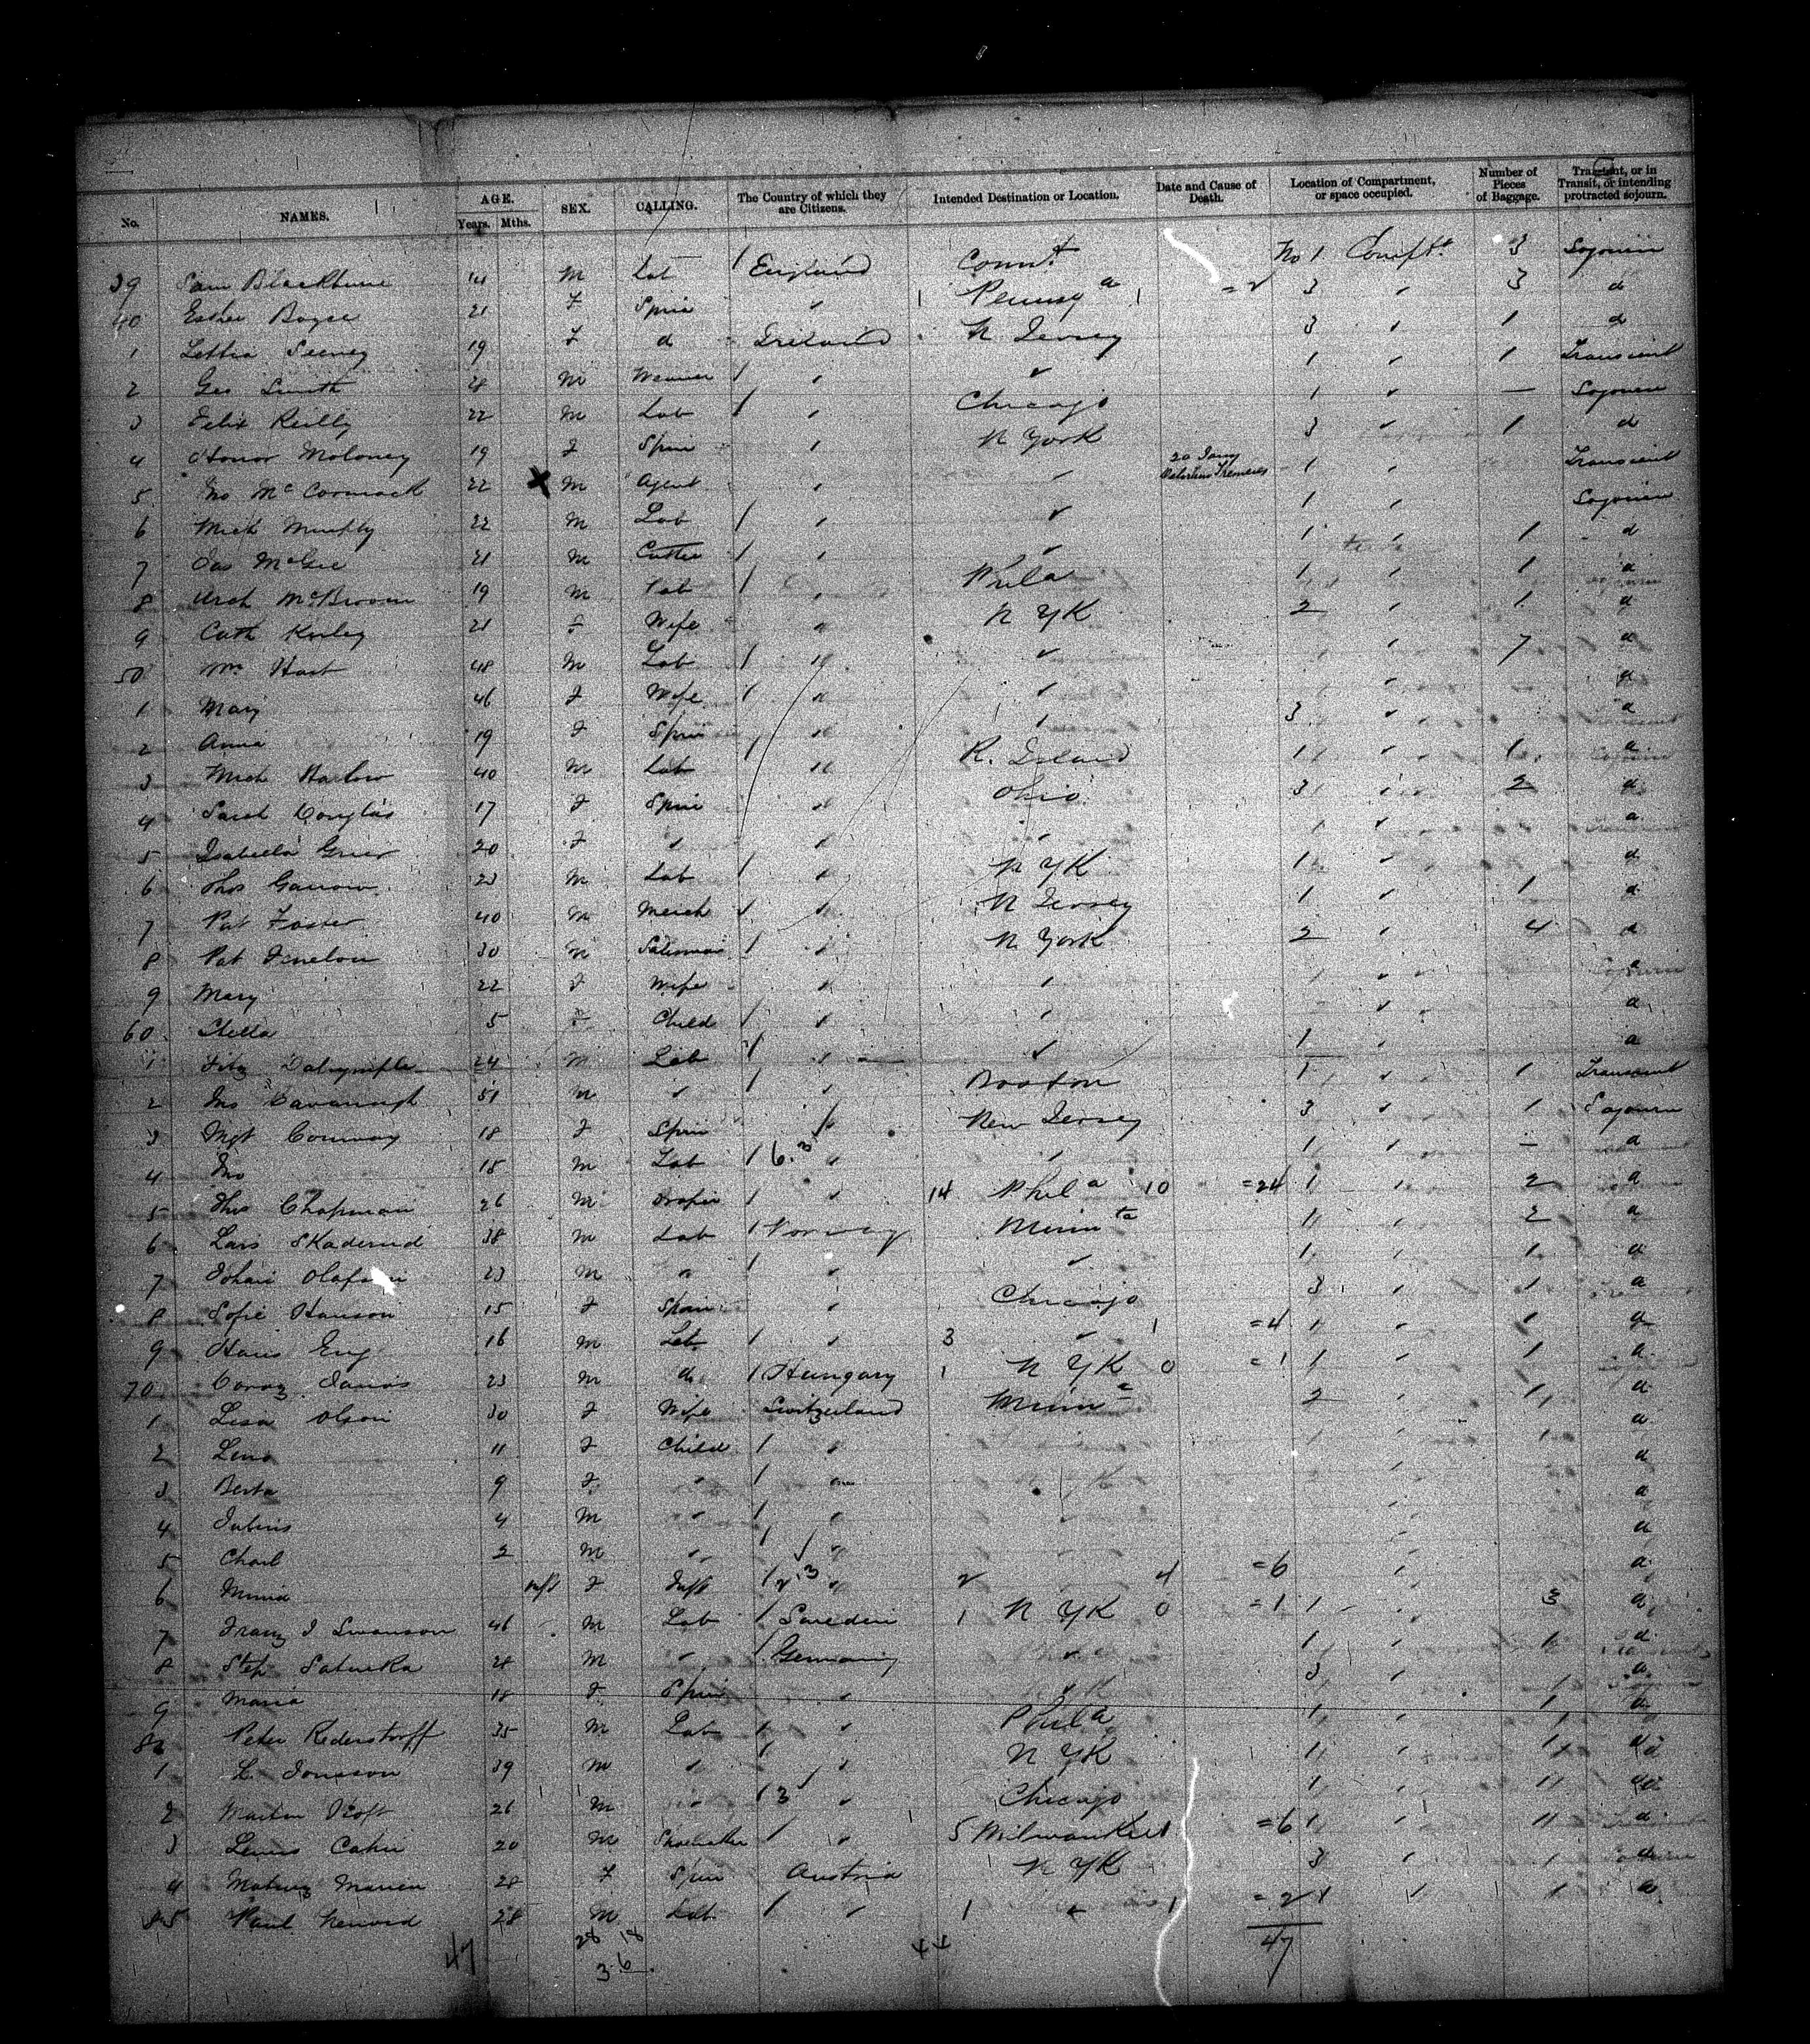 No. NAMES. AGE. Years. Mths. SEX. CALLING. The Country of which they are Citizens. Intended Destination or Location. Date and Cause of Death. Location of Compartment, or space occupied. Number of Pieces of Baggage. Transient, or in Transit, or intending protracted sojourn.
39 Sam Blackburne 14 M Lab 1 England Connt No 1 Compt. 3 Sojourn
40 Esther Boyce 21 F Spin " 1 Pennsya 1 = 2 3 " 3 d
1 Lettia Seeney 19 F d Ireland N Jersey 3 " 1 d
2 Geo Smith 28 M Weaver 1 " " 1 " 1 Transient
3 Felix Reilly 22 M Lab 1 " Chicago 1 " — Sojourn
4 Honor Moloney 19 F Spin " N York 3 " 1 d
5 Jno McCormack 22 M Agent " " 20 Jany Delirium Tremens 1 " Transient
6 Mich Murphy 22 M Lab 1 " " 1 " Sojourn
7 Jas McGee 21 M Cutter 1 " " 1 1 d
8 Arch McBroom 19 M Lab 1 " Phila 1 " 1 d
9 Cath Kerley 21 F Wife " N YK 2 " 1 d
50 Wm Hart 48 M Lab 1 " " " 7 d
1 Mary 46 F Wife 1 " " " d
2 Anna 19 F Spin " " 3 " d
3 Mich Harlow 40 M Lab 1 " R. Island 1 " 1 d
4 Sarah Douglas 17 F Spin " Ohio 3 " 2 d
5 Isabella Grier 20 F " " " " " d
6 Thos Garrow 23 M Lab 1 " N YK 1 " d
7 Pat Foster 40 M Merch 1 " N Jersey 1 " 1 d
8 Pat Finelon 30 M Salesman 1 " N. York 2 " 4 d
9 Mary 22 F Wife " " " " d
60 Stella 5 F Child 1 " " " d
1 Fitz Dalrymple 24 M Lab 1 " " 1 " d
2 Jno Cavanagh 51 M " 1 " Boston 1 " 1 Transient
3 Mgt Conway 18 F Spin " New Jersey 3 " 1 Sojourn
4 Jno 15 M Lab 1 6.3 " " 1 " — d
5 Thos Chapman 26 M Draper 1 " 14 Phila 10 =24 1 " 2 d
6 Lars Skaderud 38 M Lab 1 Norway Minnta 1 " 2 d
7 23 M " 1 " " 1 " 1 d
8 Sofie Hanson 15 F Spin " Chicago 3 " 1 d
9 Hans Eng 16 M Lab 1 " 3 " 1 =4 1 " 1 d
70 23 M d 1 Hungary 1 N YK 0 = 1 1 " 1 d
1 Lisa Olson 30 F Wife Switzerland Minna 2 " 1 d
2 Lina 11 F Child 1 " d
3 Berta 9 F " 1 " d
4 4 M " 1 " d
5 Charl 2 M " 1 " d
6 Minna inft F Inft 1 2.3 " 2 4 =6 " d
7 Franz J Swanson 46 M Lab 1 Sweden 1 N YK 0 =1 1 " 3 d
8 Step 28 M " 1 Germany " 1 " 1 d
9 Maria 18 F Spin " " 3 " 1 d
80 Peter Rederstorff 35 M Lab 1 " Phila 1 " 1 d
1 L. Jonsson 39 M " 1 " N YK 1 " 1 d
2 Martin 26 M " 1 3 " Chicago 1 " 1 d
3 Lewis Cahn 20 M Shoemaker 1 " 5 Milwaukee 1 =6 1 " 11 d
4 28 F Spin Austria N YK 3 " 1 d
85 Paul 28 M Lab 1 " 1 " 1 =2 1 " 1 d
47 28 18 44 47
36